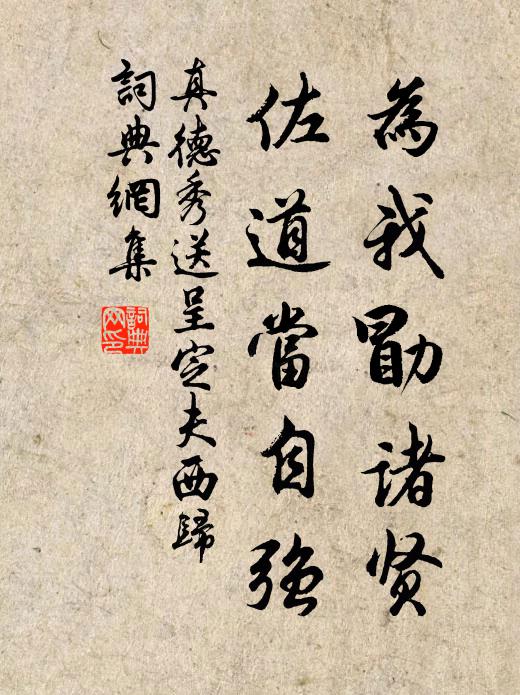 為我勖諸贤
佐道當自强
真德秀送呈定夫西歸
詞典網集
詞典网印